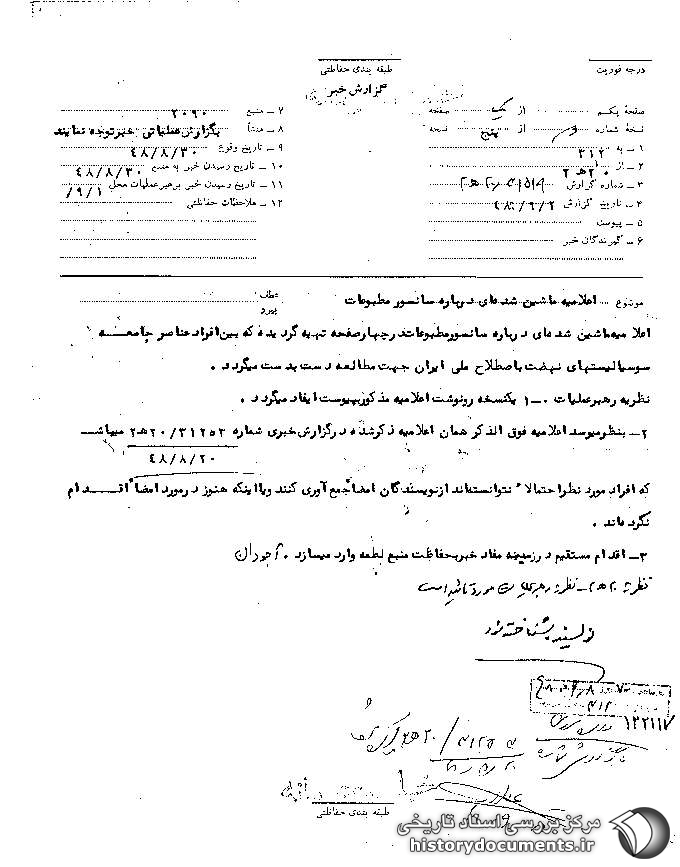 درجه فوریت
طبقه بندی حفاظتی
گزارش خبر
صفحهٔ یکم از یک صفحه
نسخهٔ شماره از پنج نسخه
۱ – به ۳۱۲
۲ – از ۲۰ ه ۲
۳ – شماره گزارش
۴ – تاریخ گزارش ۴۸/۹/۲
۵ – پیوست
۶ – گیرندگان خبر
۷ – منبع ۲۰۹۰
۸ – منشأ بگزارش عملیاتی خبر توجه نمایند
۹ – تاریخ وقوع ۴۸/۸/۳۰
۱۰ – تاریخ رسیدن خبر به منبع ۴۸/۸/۳۰
۱۱ – تاریخ رسیدن خبر برهبر عملیات محل ۹/۱/
۱۲ – ملاحظات حفاظتی
موضوع اعلامیه ماشین شده‌ای درباره سانسور مطبوعات
عطف
پیرو
اعلامیه ماشین شده‌ای درباره سانسور مطبوعات در چهار صفحه تهیه گردیده که بین افراد عناصر جامعه
سوسیالیستهای نهضت باصطلاح ملی ایران جهت مطالعه دست بدست میگردد .
نظریه رهبر عملیات ۰ ۱– یکنسخه رونوشت اعلامیه مذکور بپیوست ایفاد میگردد .
۲– بنظر میرسد اعلامیه فوق الذکر همان اعلامیه ذکر شده در گزارش خبری شماره ۲۰/۳۱۲۵۳ ه ۲ میباشد
۴۸/۸/۲۰
که افراد مورد نظر احتمالا نتوانسته‌اند از نویسندگان امضا جمع آوری کنند ویا اینکه هنوز در مورد امضا اقدام
نکرده‌اند .
۳– اقدام مستقیم در زمینه مفاد خبر بحفاظت منبع لطمه وارد میسازد . آجودان
نظریه ۲۰ ه ۲ – نظریه رهبر عملیات مورد تائید است
نویسنده شناخته شود
۳۱۲
۱۲۲۱۱۷
طبقه بندی حفاظتی
مرکز بررسی اسناد تاریخی
historydocuments.ir